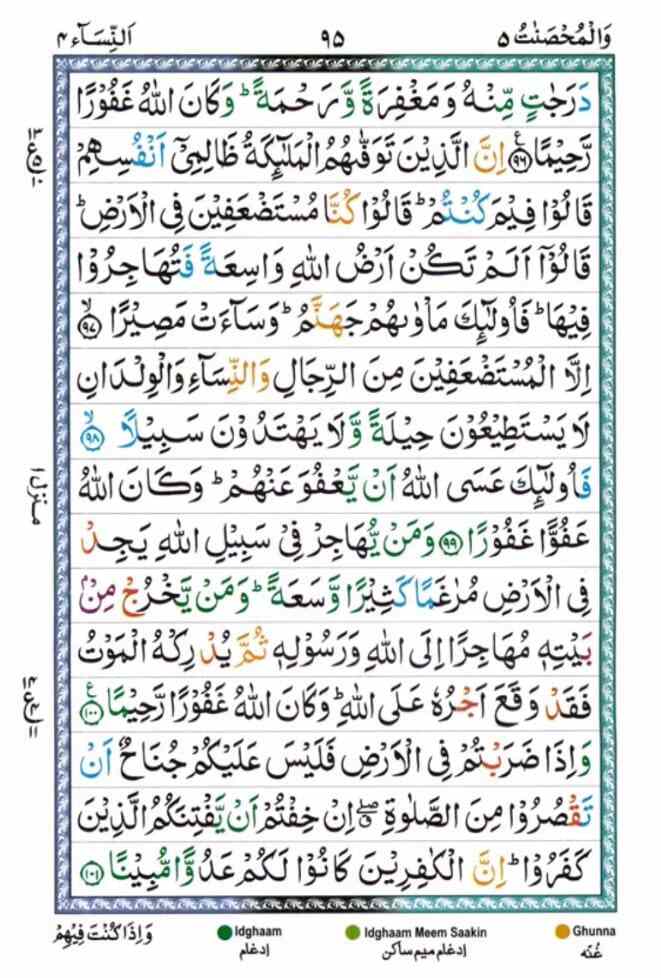 وَالْمُحْصَنٰتُ ۵ ۹۵ اَلنِّسَآء ۴
دَرَجٰتٍ مِّنْهُ وَمَغْفِرَةً وَّرَحْمَةً ؕ وَكَانَ اللّٰهُ غَفُوْرًا
رَّحِيْمًا ﴿۹۶﴾ اِنَّ الَّذِيْنَ تَوَفّٰٮهُمُ الْمَلٰٓئِكَةُ ظَالِمِىْٓ اَنْفُسِهِمْ
قَالُوْا فِيْمَ كُنْتُمْ ؕ قَالُوْا كُنَّا مُسْتَضْعَفِيْنَ فِى الْاَرْضِ ؕ
قَالُوْٓا اَلَمْ تَكُنْ اَرْضُ اللّٰهِ وَاسِعَةً فَتُهَاجِرُوْا
فِيْهَا ؕ فَاُولٰٓئِكَ مَاْوٰٮهُمْ جَهَنَّمُ ؕ وَسَآءَتْ مَصِيْرًا ۙ﴿۹۷﴾
اِلَّا الْمُسْتَضْعَفِيْنَ مِنَ الرِّجَالِ وَالنِّسَآءِ وَالْوِلْدَانِ
لَا يَسْتَطِيْعُوْنَ حِيْلَةً وَّلَا يَهْتَدُوْنَ سَبِيْلًا ۙ﴿۹۸﴾
فَاُولٰٓئِكَ عَسَى اللّٰهُ اَنْ يَّعْفُوَ عَنْهُمْ ؕ وَكَانَ اللّٰهُ
عَفُوًّا غَفُوْرًا ﴿۹۹﴾ وَمَنْ يُّهَاجِرْ فِىْ سَبِيْلِ اللّٰهِ يَجِدْ
فِى الْاَرْضِ مُرٰغَمًا كَثِيْرًا وَّسَعَةً ؕ وَمَنْ يَّخْرُجْ مِنْۢ
بَيْتِهٖ مُهَاجِرًا اِلَى اللّٰهِ وَرَسُوْلِهٖ ثُمَّ يُدْرِكْهُ الْمَوْتُ
فَقَدْ وَقَعَ اَجْرُهٗ عَلَى اللّٰهِ ؕ وَكَانَ اللّٰهُ غَفُوْرًا رَّحِيْمًا ﴿۱۰۰﴾
وَاِذَا ضَرَبْتُمْ فِى الْاَرْضِ فَلَيْسَ عَلَيْكُمْ جُنَاحٌ اَنْ
تَقْصُرُوْا مِنَ الصَّلٰوةِ ۖ اِنْ خِفْتُمْ اَنْ يَّفْتِنَكُمُ الَّذِيْنَ
كَفَرُوْا ؕ اِنَّ الْكٰفِرِيْنَ كَانُوْا لَكُمْ عَدُوًّا مُّبِيْنًا ﴿۱۰۱﴾
منزل ۱
وَاِذَا كُنْتَ فِيْهِمْ
Idghaam
ادغام
Idghaam Meem Saakin
ادغام میم ساکن
Ghunna
غُنّه